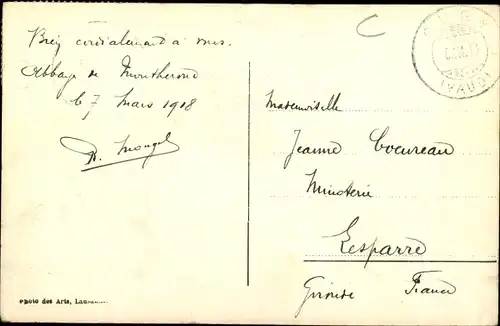 Bien cordialement à vous.
Abbaye de Montheron
le 7 Mars 1918
Mademoiselle
Jeanne Cocureau
Minoterie
Lesparre
Gironde France
(VAUD)
Photo des Arts, Lausanne
C